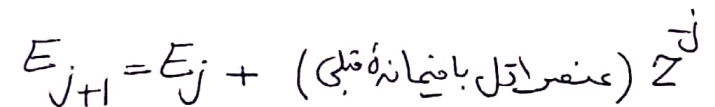 E_{j+1} = E_j + (عنصر اول باقیماندهٔ قبلی) z^{-j}